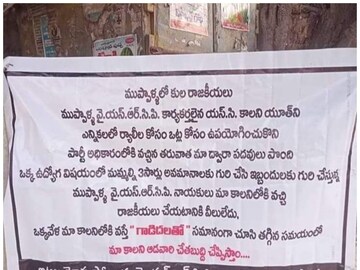 ముప్పాళ్ళలో కుల రాజకీయలు
ముప్పాళ్ళ వై.యస్.ఆర్.సి.పి కార్యకర్తలైన యస్.సి. కాలని యూత్‌ని
ఎన్నికలలో ర్యాలీల కోసం ఓట్ల కోసం ఉపయోగించుకొని
పార్టీ అధికారంలోకి వచ్చిన తరువాత మా ద్వారా పదవులు పొంది
ఒక్క ఉద్యోగ విషయంలో మమ్మల్ని 3సార్లు అవమానాలకు గురి చేసి ఇబ్బందులకు గురి చేస్తున్న
ముప్పాళ్ళ వై.యస్.ఆర్.సి.పి నాయకులు మా కాలనిలోకి వచ్చి
రాజకీయలు చేయటానికి వీలులేదు,
ఒక్కవేళ మా కాలనిలోకి వస్తే "గాడిదలతో" సమానంగా చూసి తగ్గిన సమయంలో
మా కాలని ఆడవారి చేతబుద్ధి చెప్పిస్తాం....